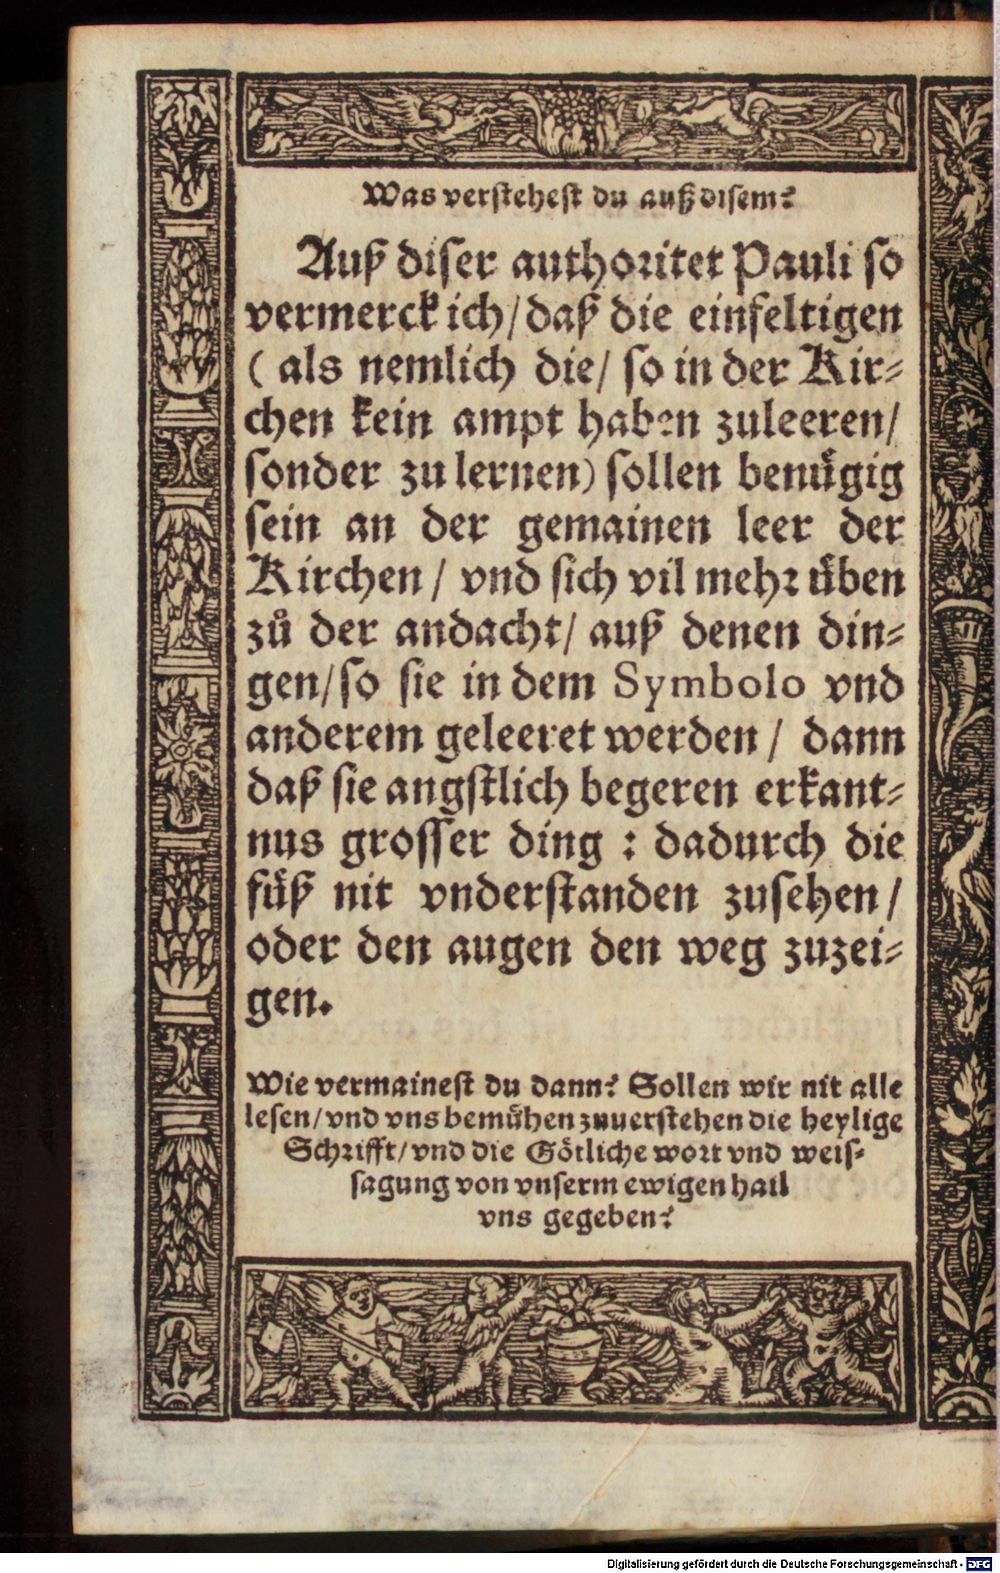 Was verstehest du auß disem?
Auß diser authoritet Pauli so
vermerck ich/ daß die einfeltigen
( als nemlich die/ so in der Kir⸗
chen kein ampt haben zuleeren/
sonder zu lernen) sollen benuͤgig
sein an der gemainen leer der
Kirchen / vnd sich vil mehr uͤben
zuͦ der andacht/ auß denen din⸗
gen/ so sie in dem Symbolo vnd
anderem geleeret werden / dann
daß sie angstlich begeren erkant⸗
nus grosser ding : dadurch die
fuͤß nit vnderstanden zusehen /
oder den augen den weg zuzei⸗
gen.
Wie vermainest du dann? Sollen wir nit alle
lesen/ vnd vns bemuͤhen zuuerstehen die heylige
Schrifft/ vnd die Goͤtliche wort vnd weis⸗
sagung von vnserm ewigen hail
vns gegeben?
Digitalisierung gefördert durch die Deutsche Forschungsgemeinschaft - DFG